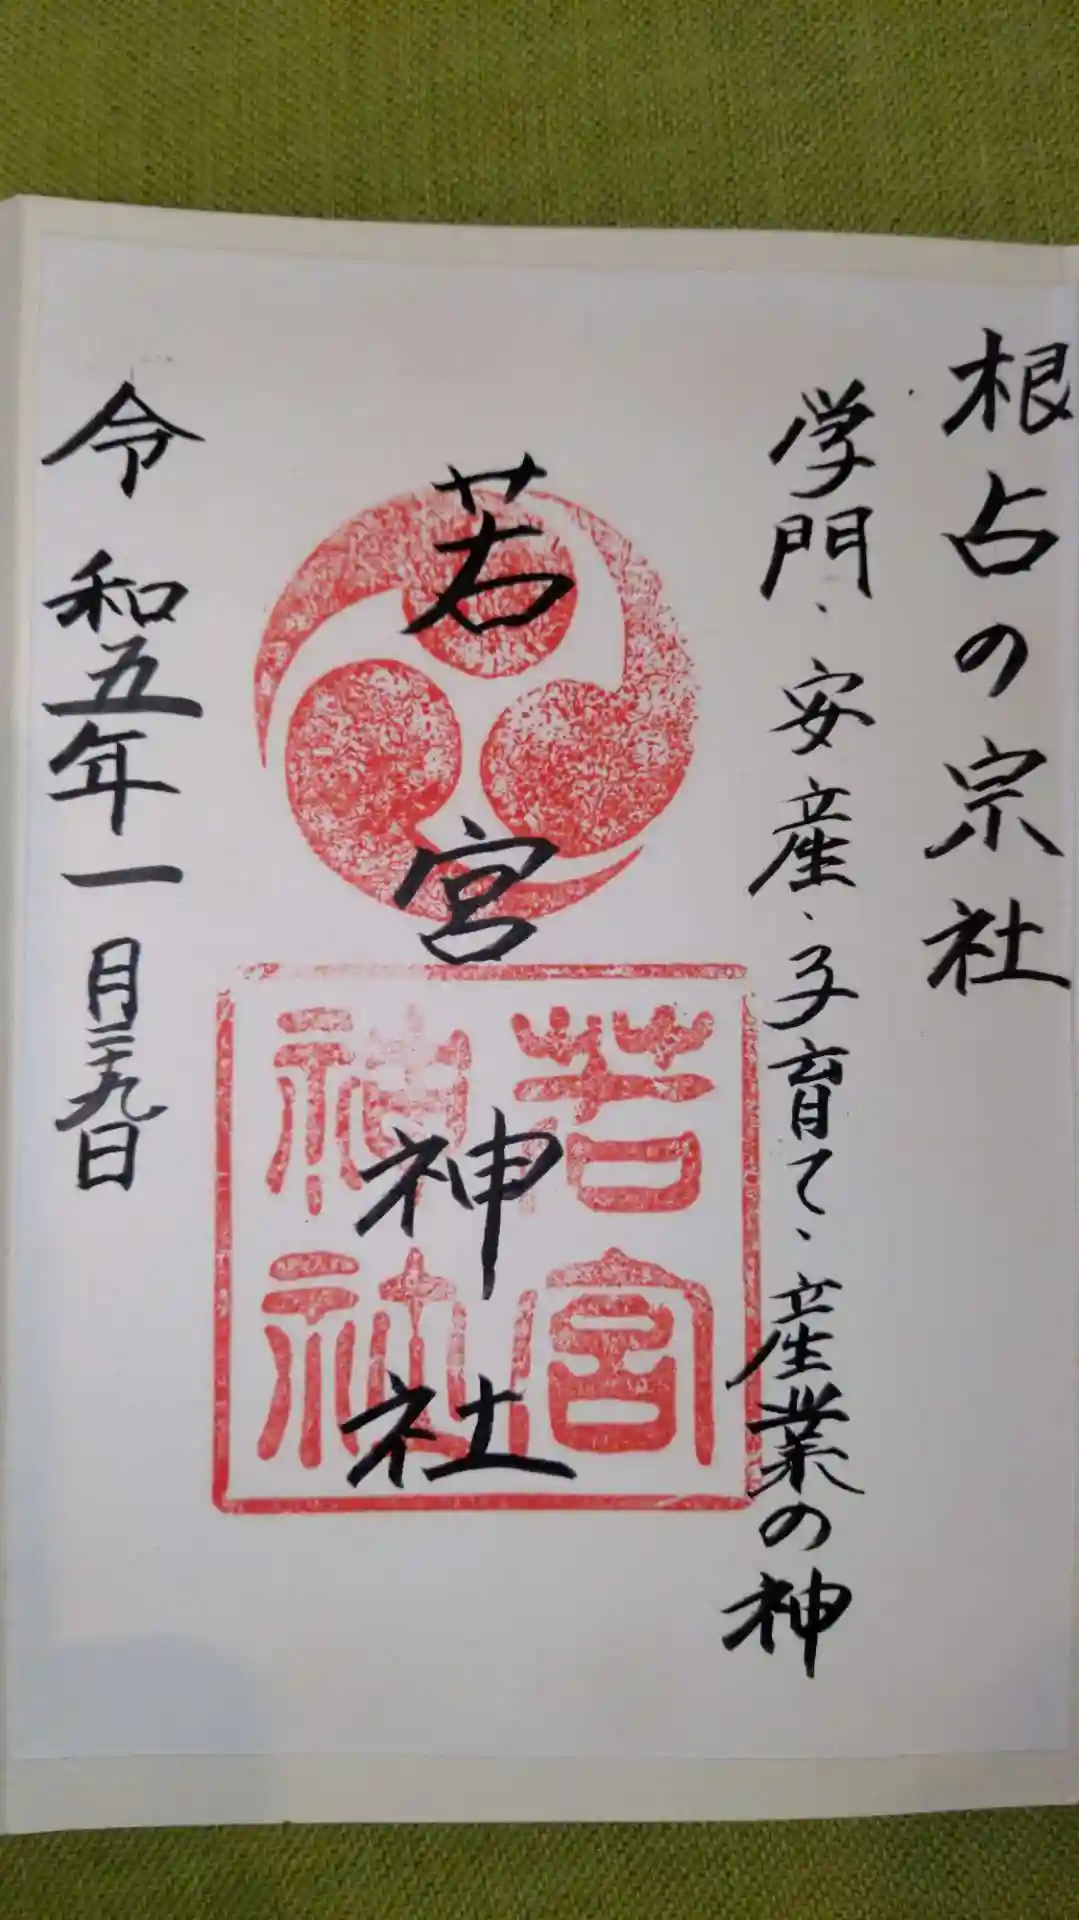 根占の宗社
学門、安産、子育て、産業の神
若宮神社
若宮
神社
令和五年一月二十九日